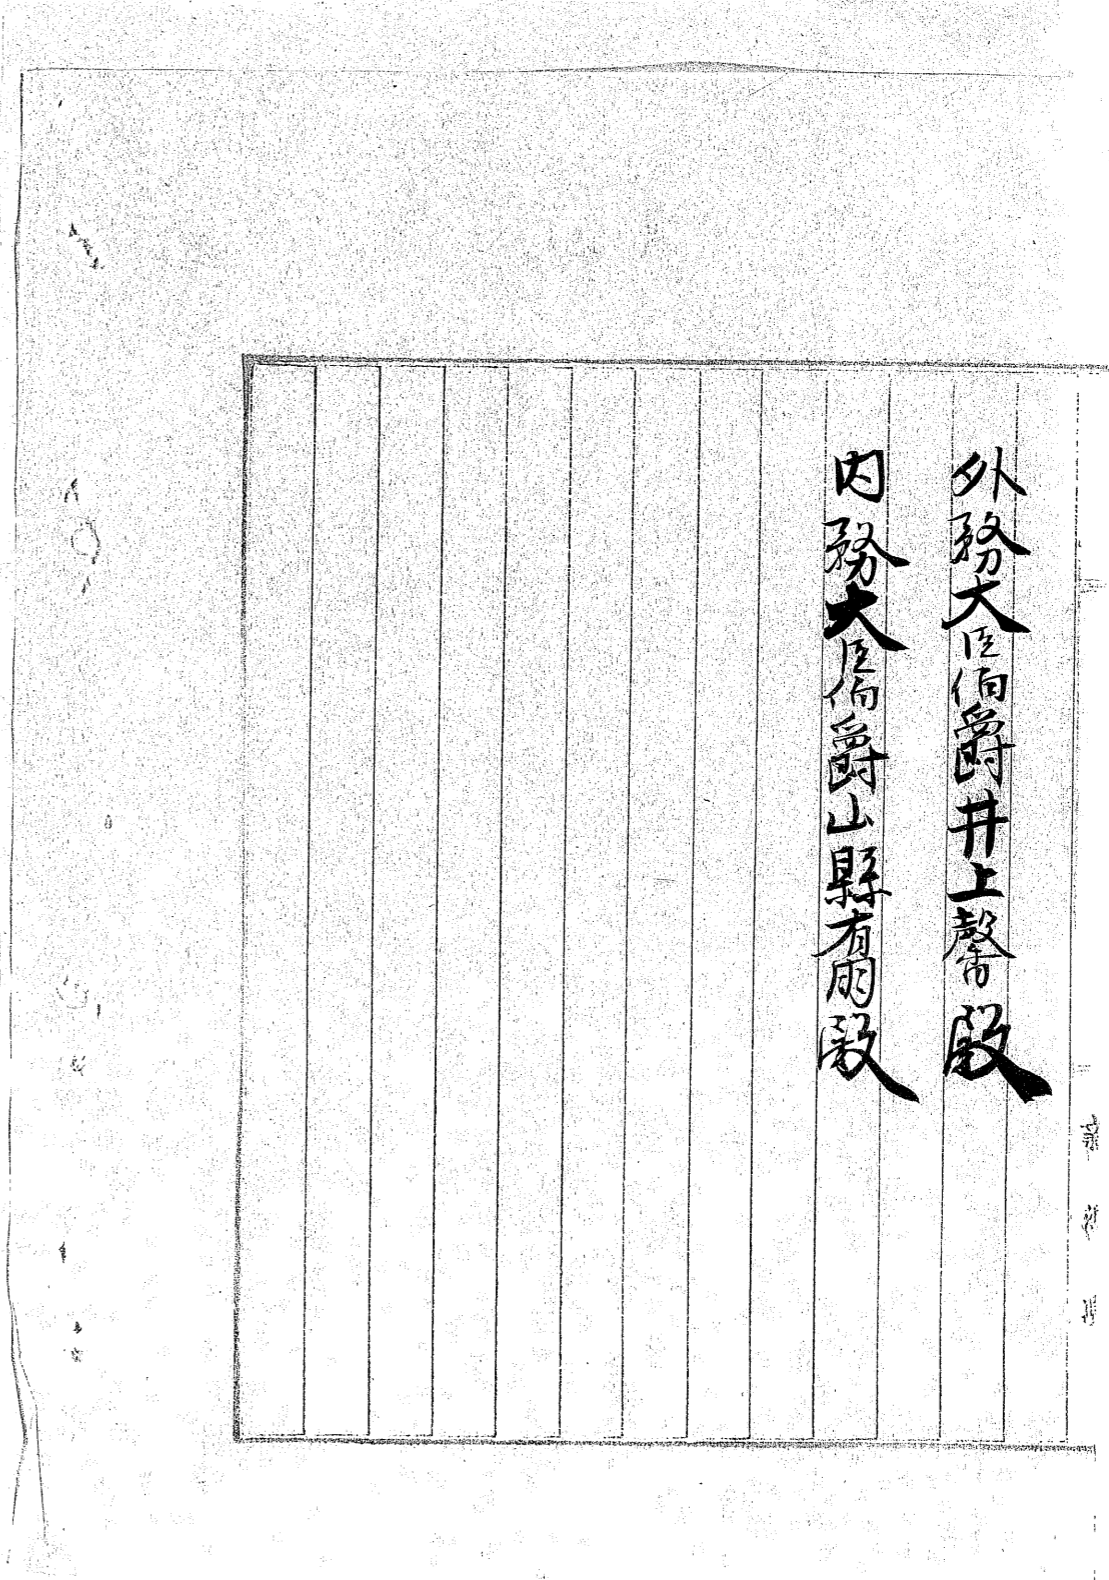 外務大臣伯爵井上馨殿
内務大臣伯爵山縣有朋殿